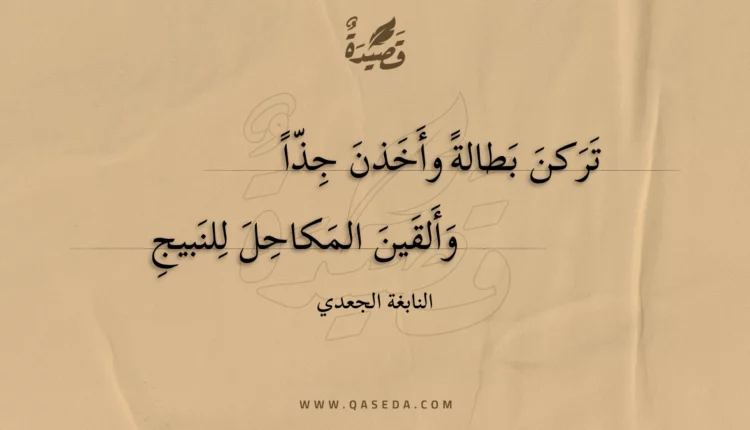 قَصِيدَةٌ
تَرَكنَ بَطالةً وأَخَذنَ جِذّاً
وَأَلقَينَ المَكاحِلَ لِلنَبيجِ
النابغة الجعدي
WWW.QASEDA.COM